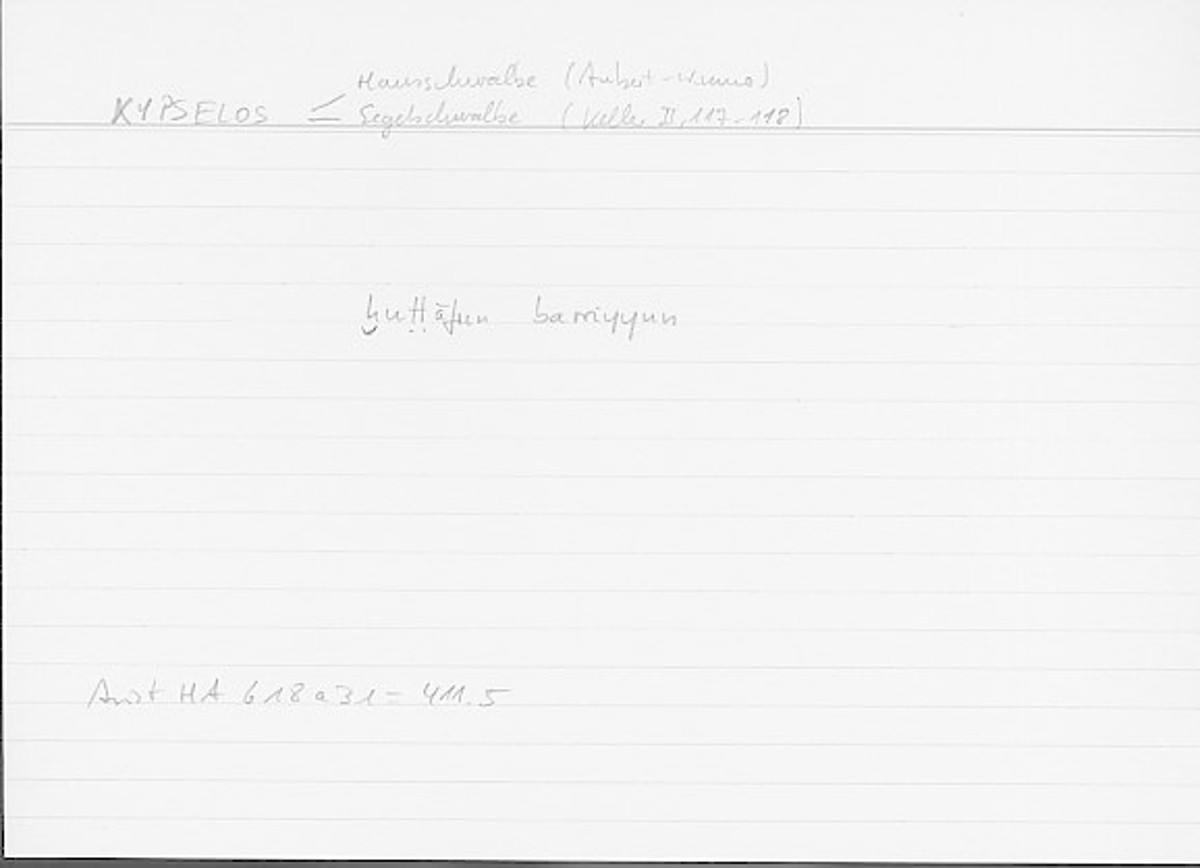 Hausschwalbe (Aubert-Wimmer)
KYPSELOS < Segelschwalbe (Keller II, 117-118)
ḫuṭṭāfun barriyyun
Arist HA 618a31 = 411.5